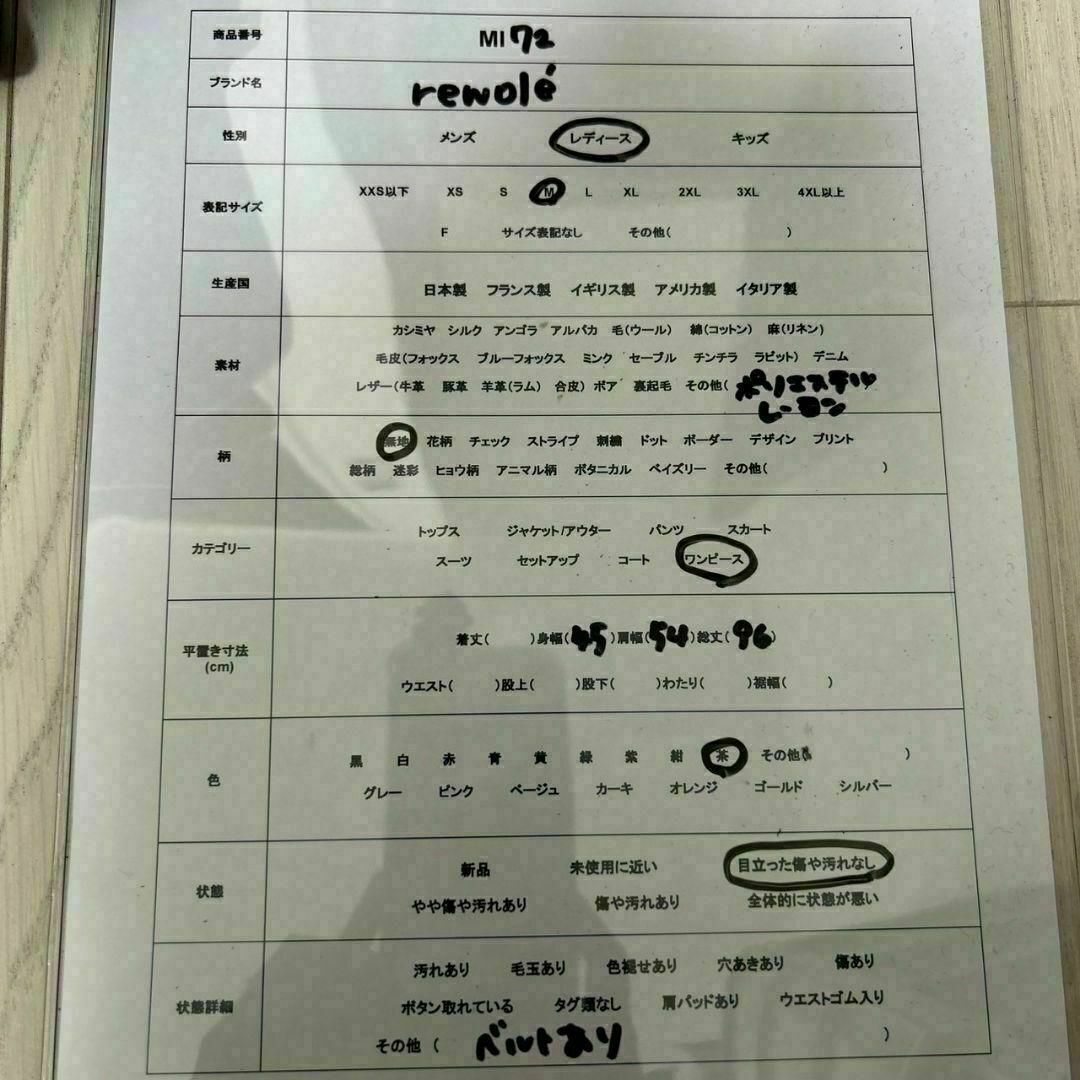 商品番号 MI 72
ブランド名 renolé
性別 メンズ レディース キッズ
表記サイズ XXS以下 XS S M L XL 2XL 3XL 4XL以上
F サイズ表記なし その他( )
生産国 日本製 フランス製 イギリス製 アメリカ製 イタリア製
素材 カシミヤ シルク アンゴラ アルパカ 毛(ウール) 綿(コットン) 麻(リネン)
毛皮(フォックス ブルーフォックス ミンク セーブル チンチラ ラビット) デニム
レザー(牛革 豚革 羊革(ラム) 合皮) ボア 裏起毛 その他( ポリエステル
レーヨン
柄 無地 花柄 チェック ストライプ 刺繍 ドット ボーダー デザイン プリント
総柄 迷彩 ヒョウ柄 アニマル柄 ボタニカル ペイズリー その他( )
カテゴリー トップス ジャケット/アウター パンツ スカート
スーツ セットアップ コート ワンピース
平置き寸法 (cm) 着丈( )身幅( 45 )肩幅( 54 )総丈( 96 )
ウエスト( )股上( )股下( )わたり( )裾幅( )
色 黒 白 赤 青 黄 緑 紫 紺 茶 その他( )
グレー ピンク ベージュ カーキ オレンジ ゴールド シルバー
状態 新品 未使用に近い 目立った傷や汚れなし
やや傷や汚れあり 傷や汚れあり 全体的に状態が悪い
状態詳細 汚れあり 毛玉あり 色褪せあり 穴あきあり 傷あり
ボタン取れている タグ類なし 肩パッドあり ウエストゴム入り
その他 ( ベルトあり )